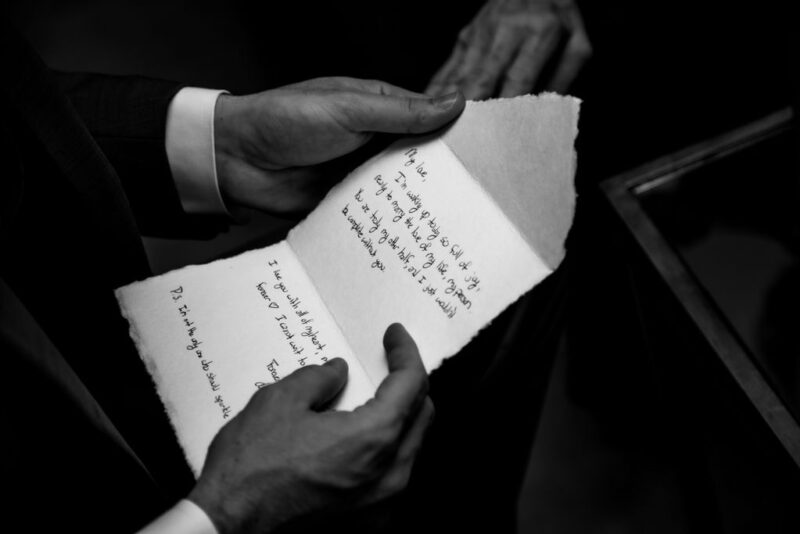 My love,
I'm waking up today so full of joy,
ready to marry the love of my life, my person
You are truly my other half, and I just wouldn't
be complete without you
I love you with all of my heart,
forever ♡ I can't wait to
Forev
P.S. I'm not the only one who should sparkle